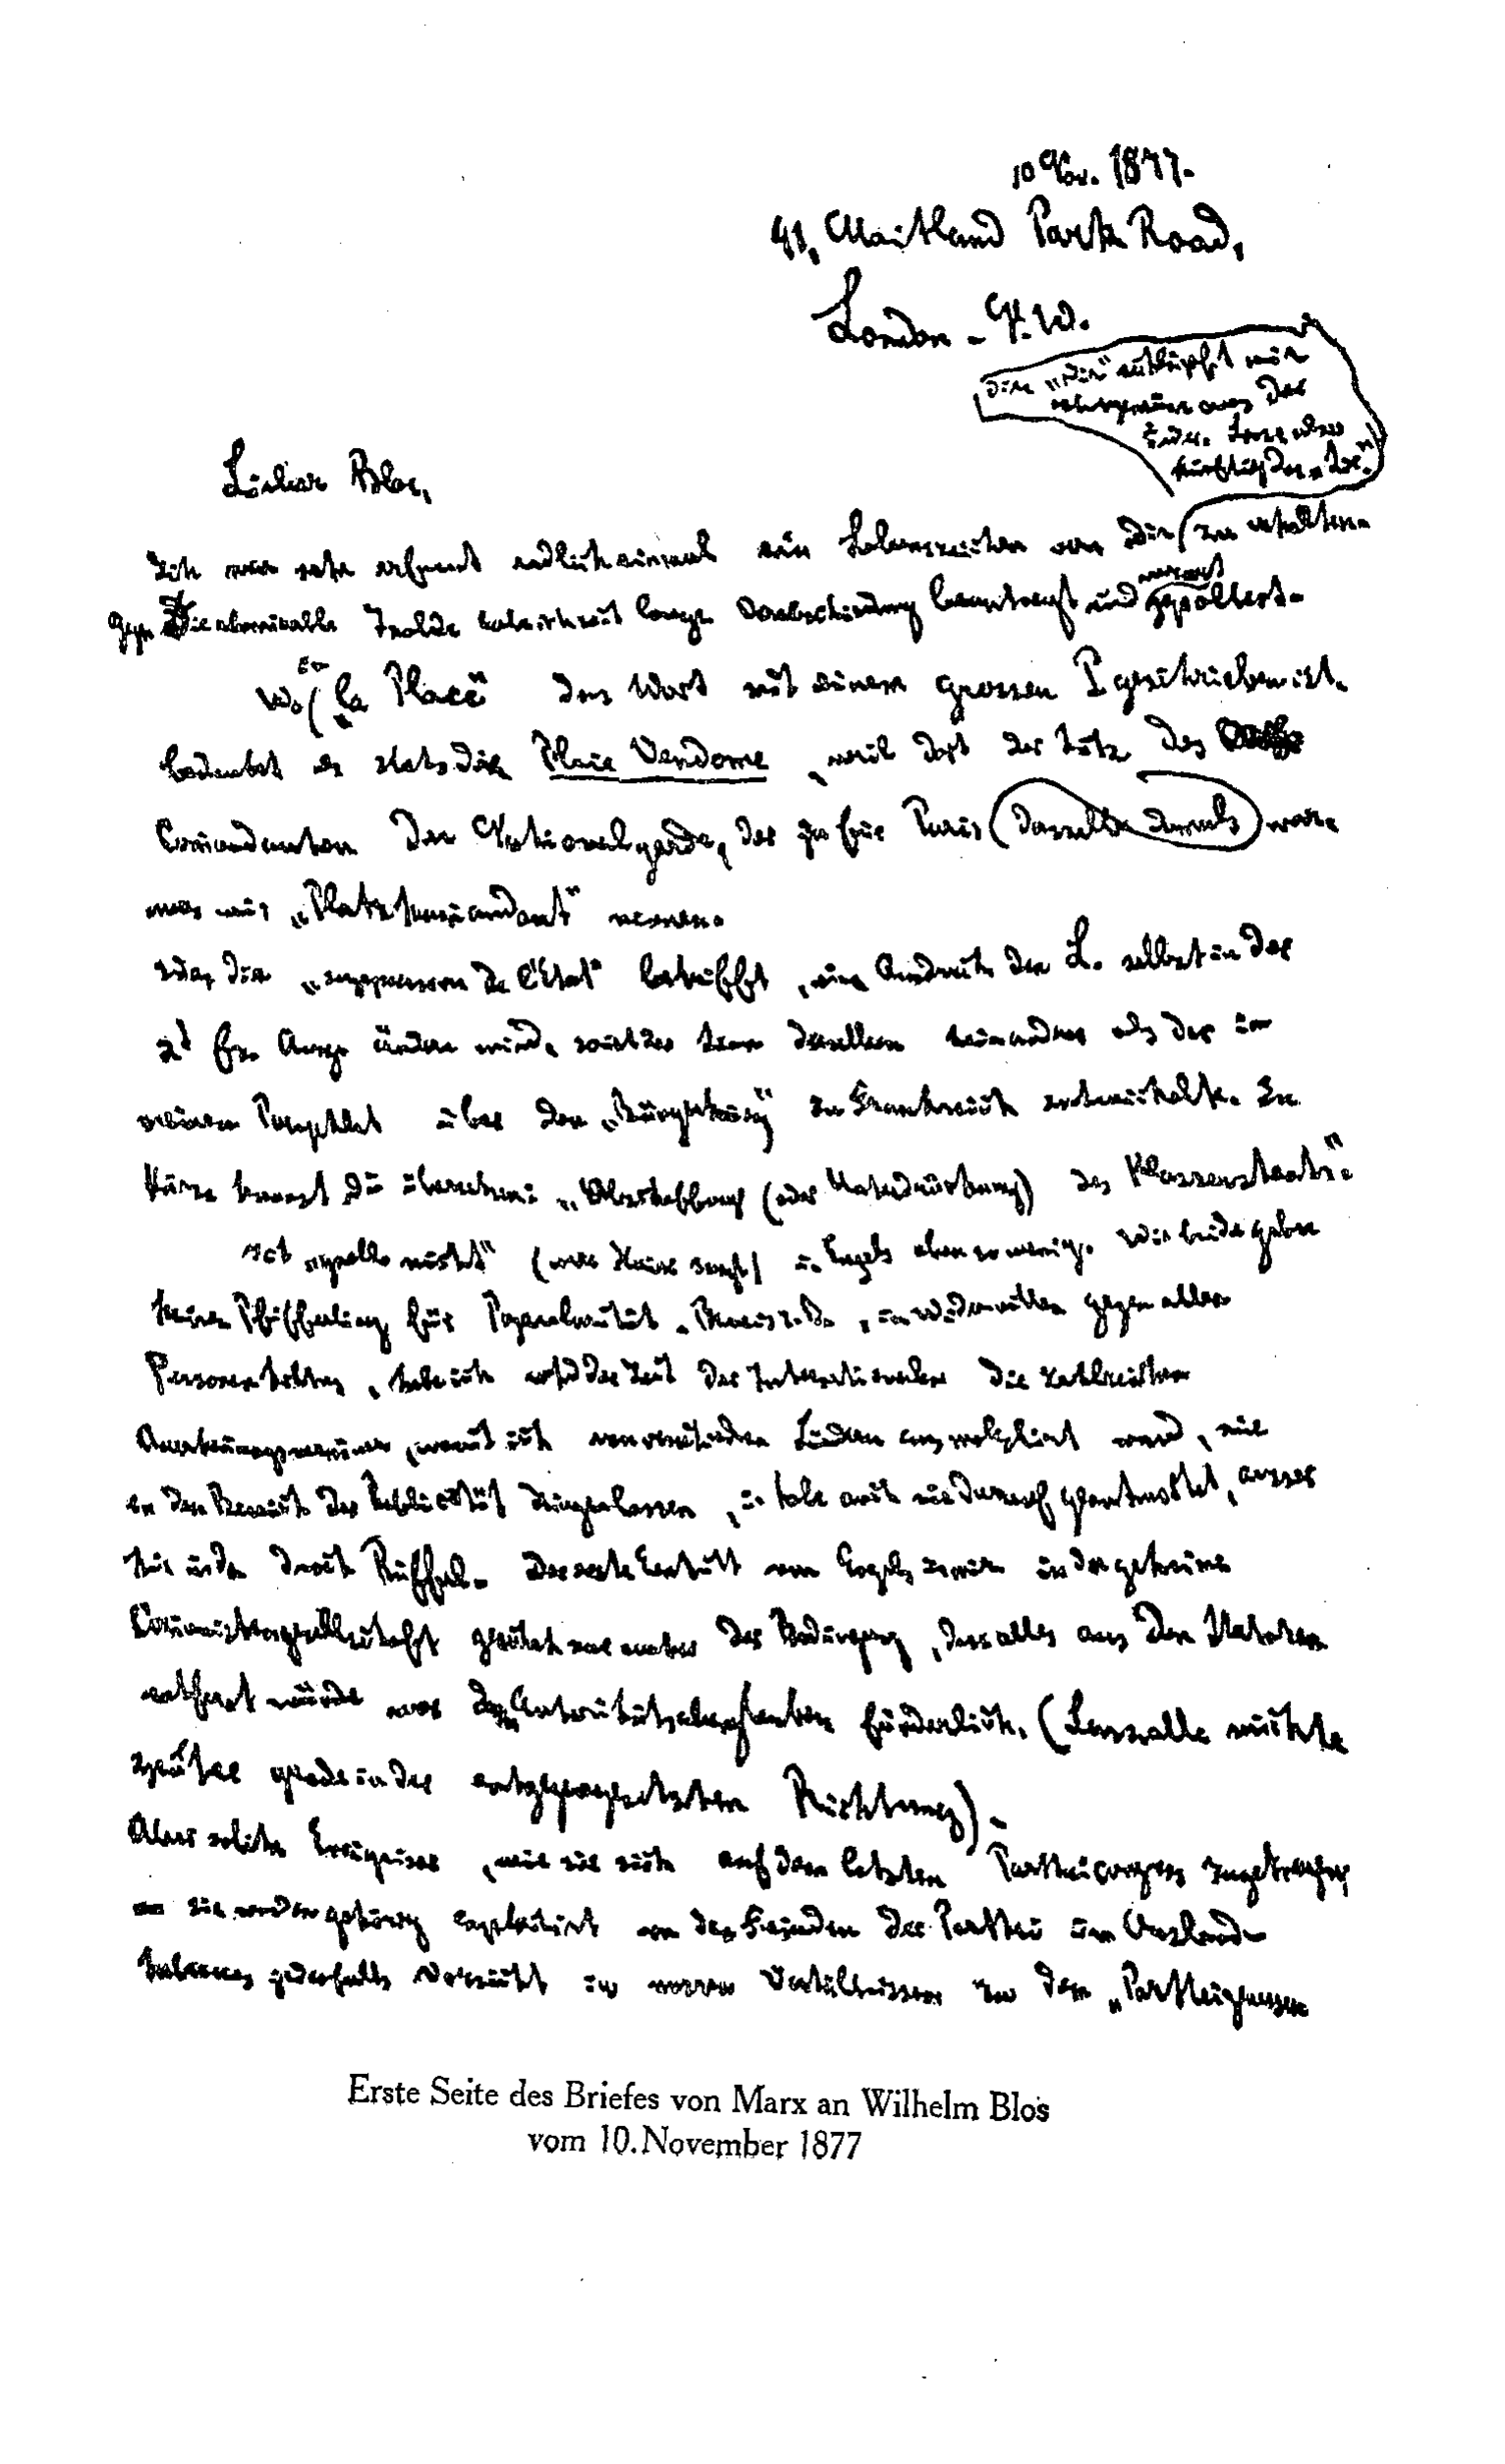 10 Nov. 1877.
41, Maitland Park Road,
London - N.W.
Das „Dir“ entschlüpft mir
aus der
Feder. Lass aber
künftig das „Sie“.
Lieber Blos,
Ich war sehr erfreut endlich einmal ein Lebenszeichen von Dir zu erhalten.
Gegen die Isolde lange und gepoltert.
Wo „la Place“ das Wort mit einem grossen P geschrieben ist,
bedeutet es stets die Place Vendome, weil dort der Sitz des
Commandanten der Nationalgarde, der ja für Paris dasselbe damals war,
was wir „Platzkommandant“ nennen.
Was die „suppression de l'Etat“ betrifft, ein Ausdruck den L. selbst in der
2t fz. Ausg. ändern wird, so ist der Sinn desselben kein andrer als der in
meinem Pamphlet über den „Bürgerkrieg“ in Frankreich entwickelte. In
Kürze kannst Du übersetzen: „Abschaffung (oder Unterdrückung) des Klassenstaats“.
Ich „grolle nicht“ (wie Heine sagt) u. Engels eben so wenig. Wir beide geben
keinen Pfifferling für Popularität. Beweis z. B., im Widerwillen gegen allen
Personenkultus, habe ich während der Zeit der Internationalen die zahlreichen
Anerkennungsmanöver, womit ich von verschiednen Ländern aus molestiert ward, nie
in den Bereich der Publicität dringen lassen, u. habe auch nie darauf geantwortet, ausser
hie u. da durch Rüffel. Der erste Eintritt von Engels u. mir in die geheime
Communistengesellschaft geschah nur unter der Bedingung, dass alles aus den Statuten
entfernt würde was dem Autoritätsaberglauben förderlich. (Lassalle wirkte
später grade in der entgegengesetzten Richtung).
Aber solche Ereignisse, wie sie sich auf dem letzten Partheicongress zugetragen
sie werden gehörig exploitirt von den Feinden der Parthei im Ausland
haben uns jedenfalls Vorsicht in unsren Verhältnissen zu den „Partheigenossen
Erste Seite des Briefes von Marx an Wilhelm Blos
vom 10. November 1877